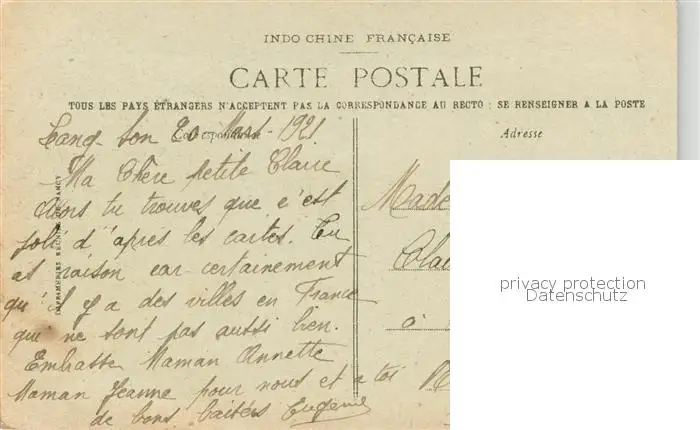 INDO CHINE FRANÇAISE
CARTE POSTALE
TOUS LES PAYS ÉTRANGERS N'ACCEPTENT PAS LA CORRESPONDANCE AU RECTO : SE RENSEIGNER A LA POSTE
Correspondance
Adresse
Lang-Son 20 1921
Ma Chère petite Claire
Alors tu trouves que c'est
joli d'après les cartes. Tu
as raison car certainement
qu'il y a des villes en France
qui ne sont pas aussi bien.
Embrasse Maman Annette
Maman Jeanne pour nous et a toi
de bons baisers Eugénie
IMPRIMERIES RÉUNIES DE NANCY
Made
Clai
à
privacy protection
Datenschutz